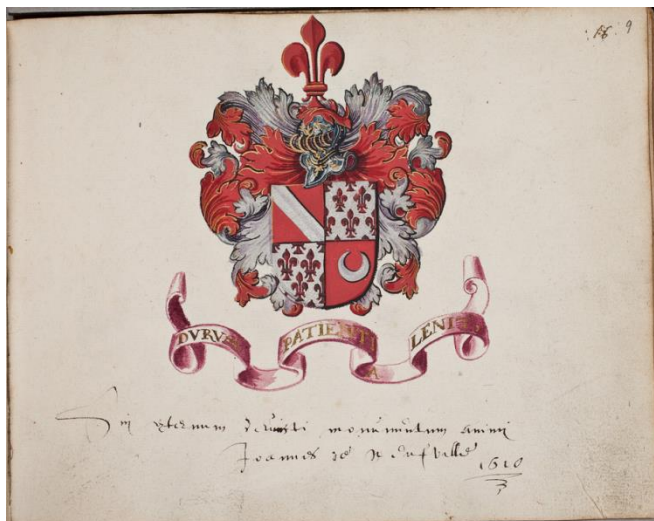 9
DVRVM PATIENTI
A LENIOR
In æternum devincti monumentum animi
Joannes de Neufville
1610